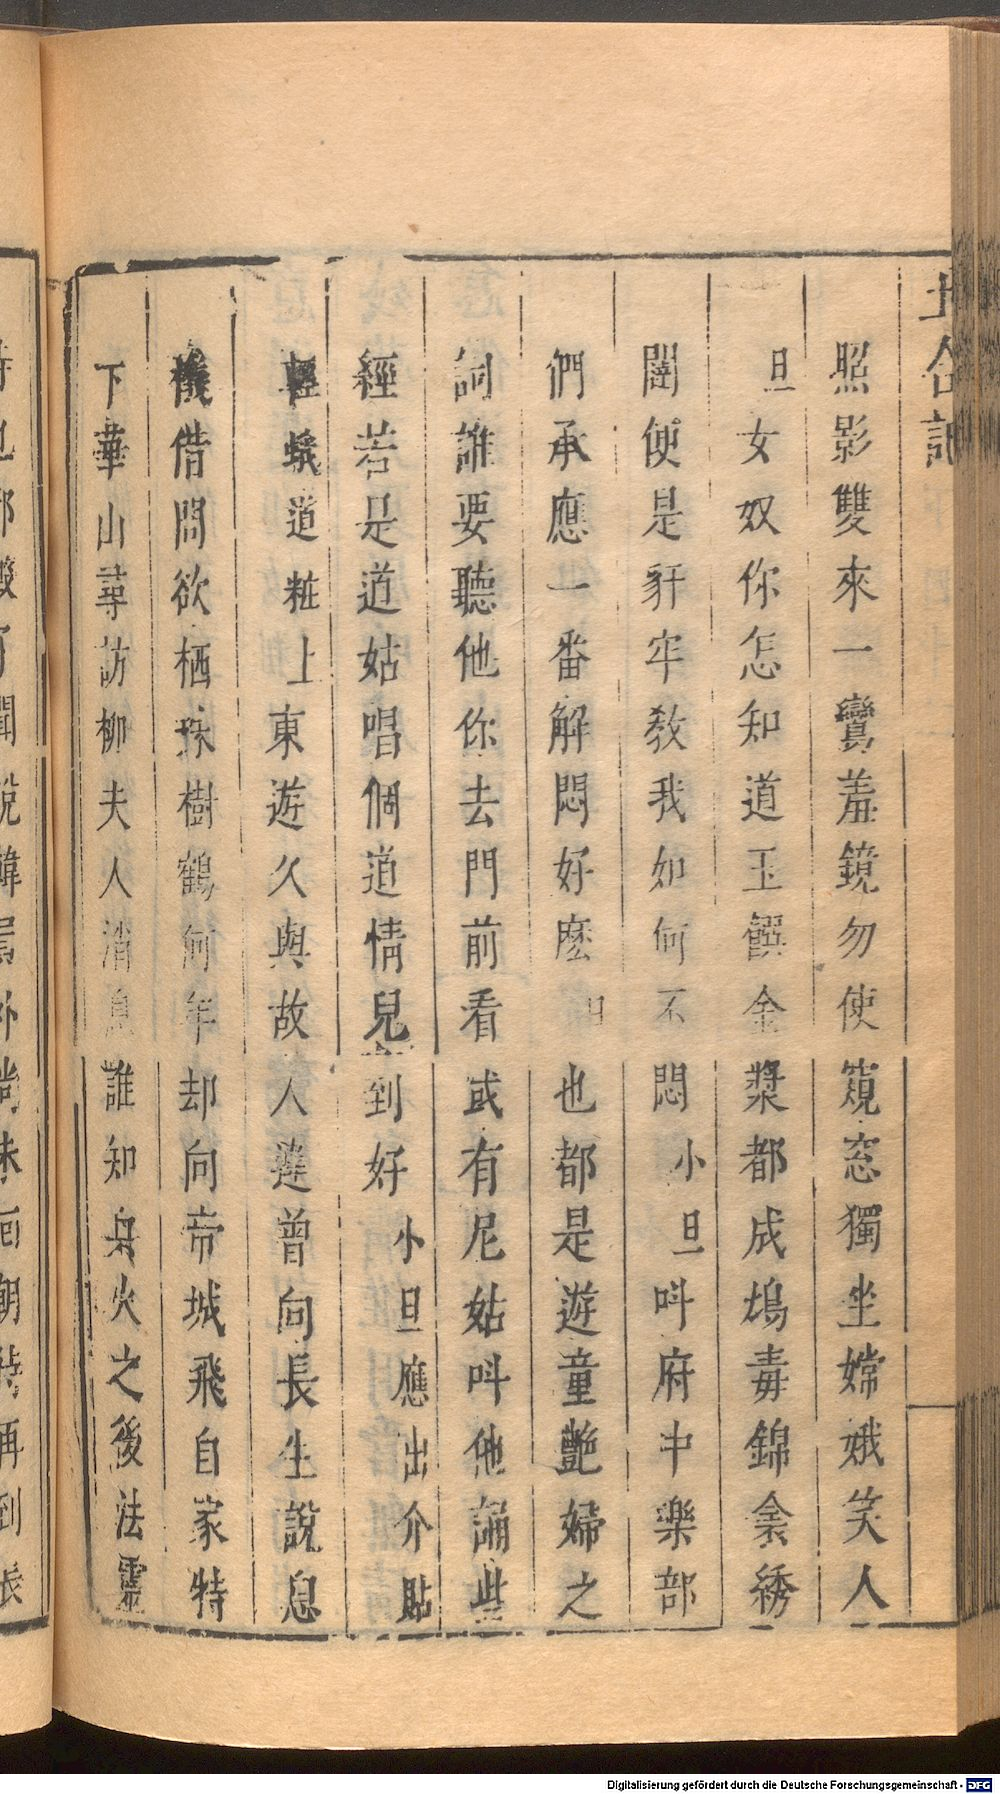 玉合記
照影雙來一鸞羞鏡勿使窺窓獨坐嫦娥笑人
旦女奴你怎知道玉饌金漿都成塢毒錦衾綉
闥便是豻牢教我如何不悶小旦呌府中樂部
們承應一番解悶好麽旦也都是遊童艷婦之
詞誰要聽他你去門前看或有尼姑呌他誦些
經若是道姑唱個道情兒到好小旦應出介貼
輕蛾道粧上東遊久與故人違曾向長生說息
機借問欲栖珠樹鶴何年却向帝城飛自家特
下華山尋訪柳夫人消息誰知兵火之後法靈
Digitalisierung gefördert durch die Deutsche Forschungsgemeinschaft - DFG